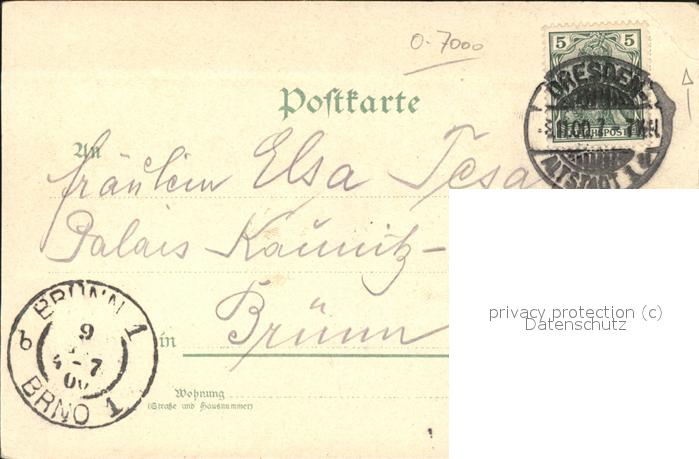 0-7000
5 5
DRESDEN
ALTSTADT 1
Postkarte
An
Fräulein Elsa
Palais Kaunitz-
in Brünn
BRÜNN 1
9
4-7
00
BRNO 1
b
Wohnung
(Straße und Hausnummer)
privacy protection (c)
Datenschutz